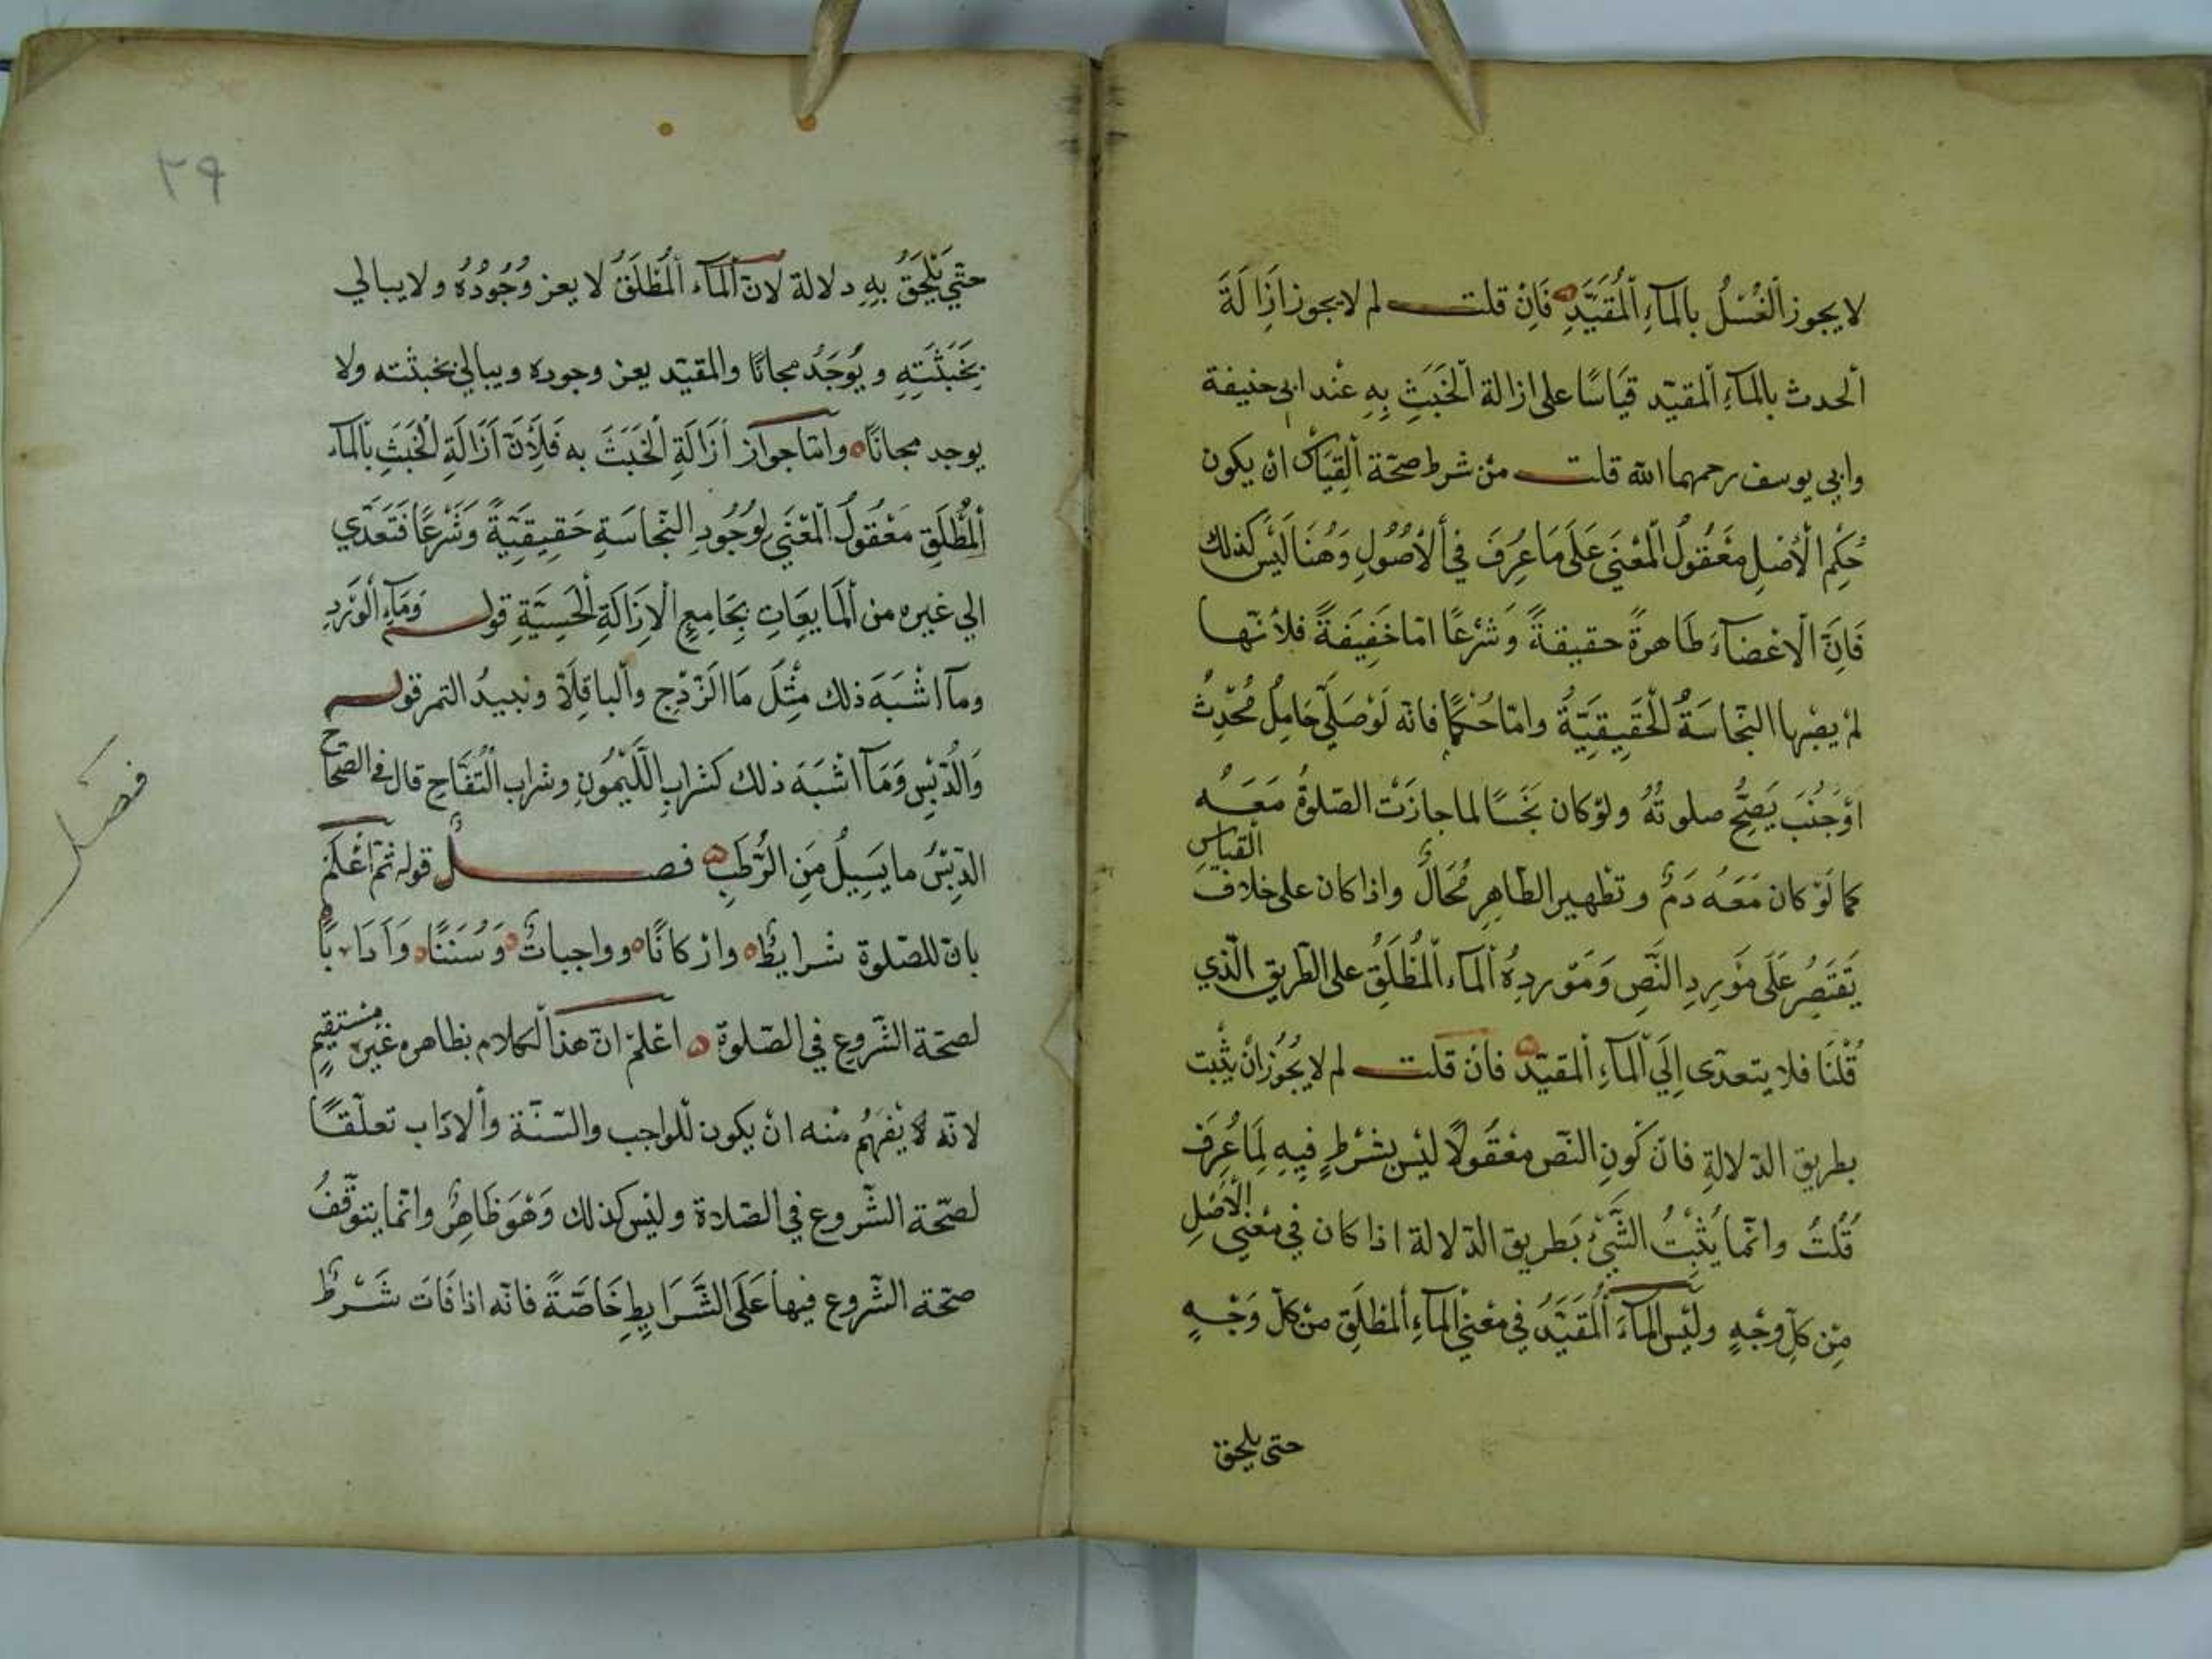 لا يجوز الغسل بالماء المقيد فان قلت لم لا يجوز ازالة
الحدث بالماء المقيد قياسا على ازالة الخبث به عند ابي حنيفة
وابي يوسف رحمهما الله قلت من شرط صحة القياس ان يكون
حكم الاصل معقول المعنى على ما عرف في الاصول وهنا ليس كذلك
فان الاعضاء طاهرة حقيقة وشرعا اما خفيفة فلأنها
لم يصبها النجاسة الحقيقية واما حكما فانه لو صلى حامل محدث
او جنب يصح صلوته ولو كان نجسا لما جازت الصلوة معه
كما لو كان معه دم وتطهير الطاهر محال واذا كان على خلاف القياس
يقتصر على مورد النص ومورده الماء المطلق على الطريق الذي
قلنا فلا يتعدى الي الماء المقيد فان قلت لم لا يجوز ان يثبت
بطريق الدلالة فان كون النص معقولا ليس بشرط فيه لما عرف
قلت وانما يثبت الشيء بطريق الدلالة اذا كان في معنى الاصل
من كل وجه وليس الماء المقيد في معنى الماء المطلق من كل وجه
حتى يلحق
٣٩
حتي يلحق به دلالة لان الماء المطلق لا يعز وجوده ولا يبالي
بخبثته ويوجد مجانا والمقيد يعز وجوده ويبالي بخبثته ولا
يوجد مجانا واما جواز ازالة الخبث به فلأن ازالة الخبث بالماء
المطلق معقول المعنى لوجود النجاسة حقيقية وشرعا فتعدي
الي غيره من المايعات بجامع الازالة الحسية قوله وماء الورد
وما اشبه ذلك مثل ما الزردج والباقلا ونبيد التمر قوله
والدبس وما اشبه ذلك كشراب الليمون وشراب التفاح قال في الصحاح
الدبس ما يسيل من الرطب فصل قوله ثم اعلم
بان للصلوة شرايط واركانا وواجبات وسننا وادابا
لصحة الشروع في الصلوة اعلم ان هذا الكلام بظاهره غير مستقيم
لانه لا يفهم منه ان يكون للواجب والسنة والاداب تعلقا
لصحة الشروع في الصلاة وليس كذلك وهو ظاهر وانما يتوقف
صحة الشروع فيها على الشرايط خاصة فانه اذا فات شرط
فصل